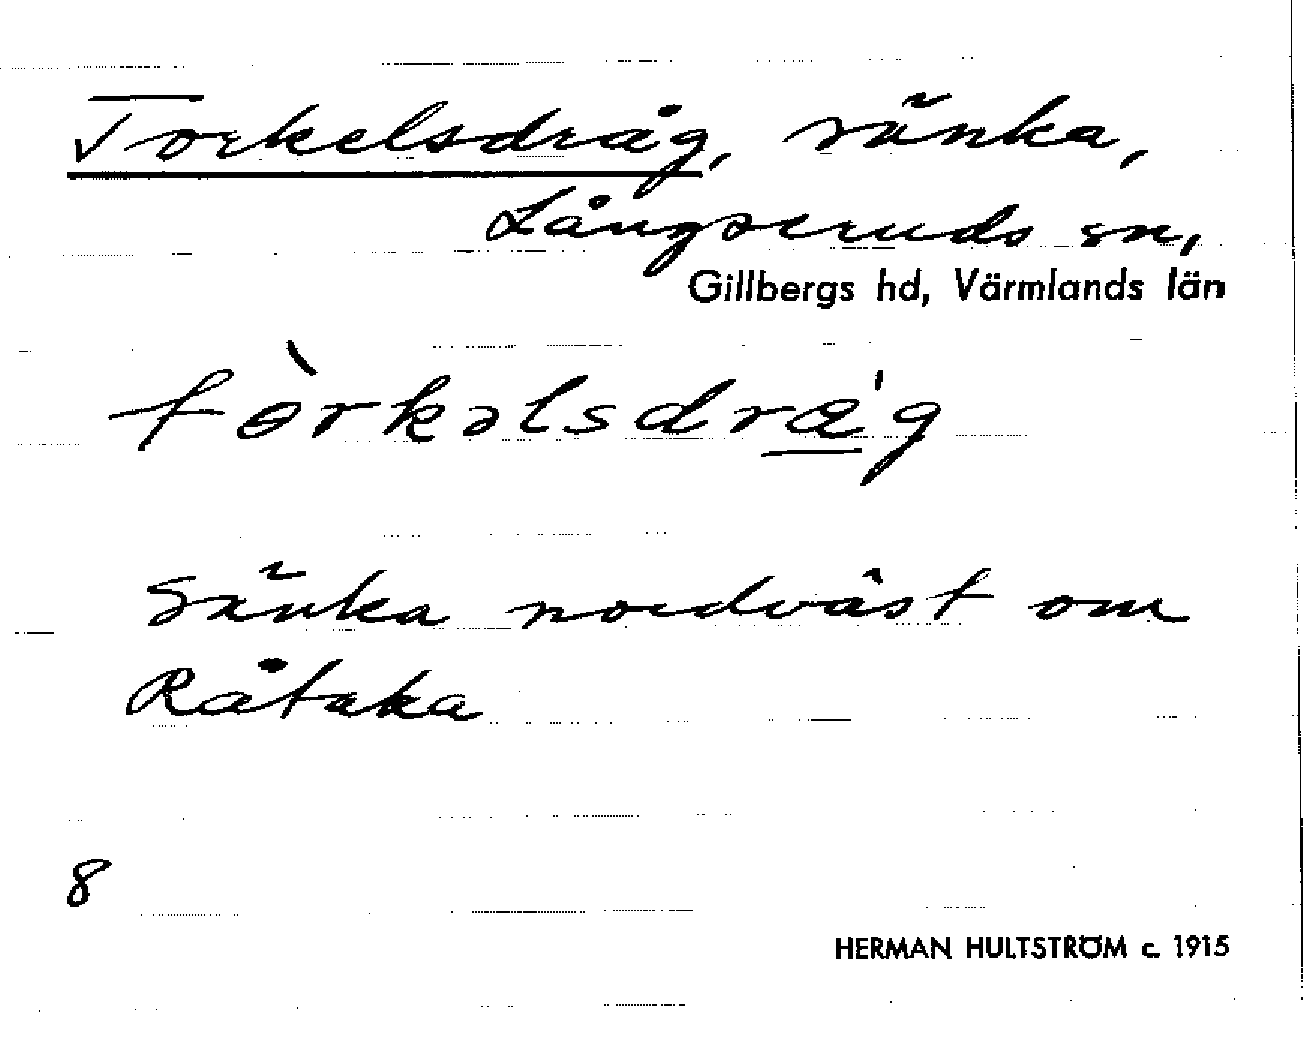 Torkelsdråg, sänka,
Långseruds sn,
Gillbergs hd, Värmlands län
tòrkəlsdra̲'g
Sänka nordväst om
Råtaka
8
HERMAN HULTSTRÖM c. 1915